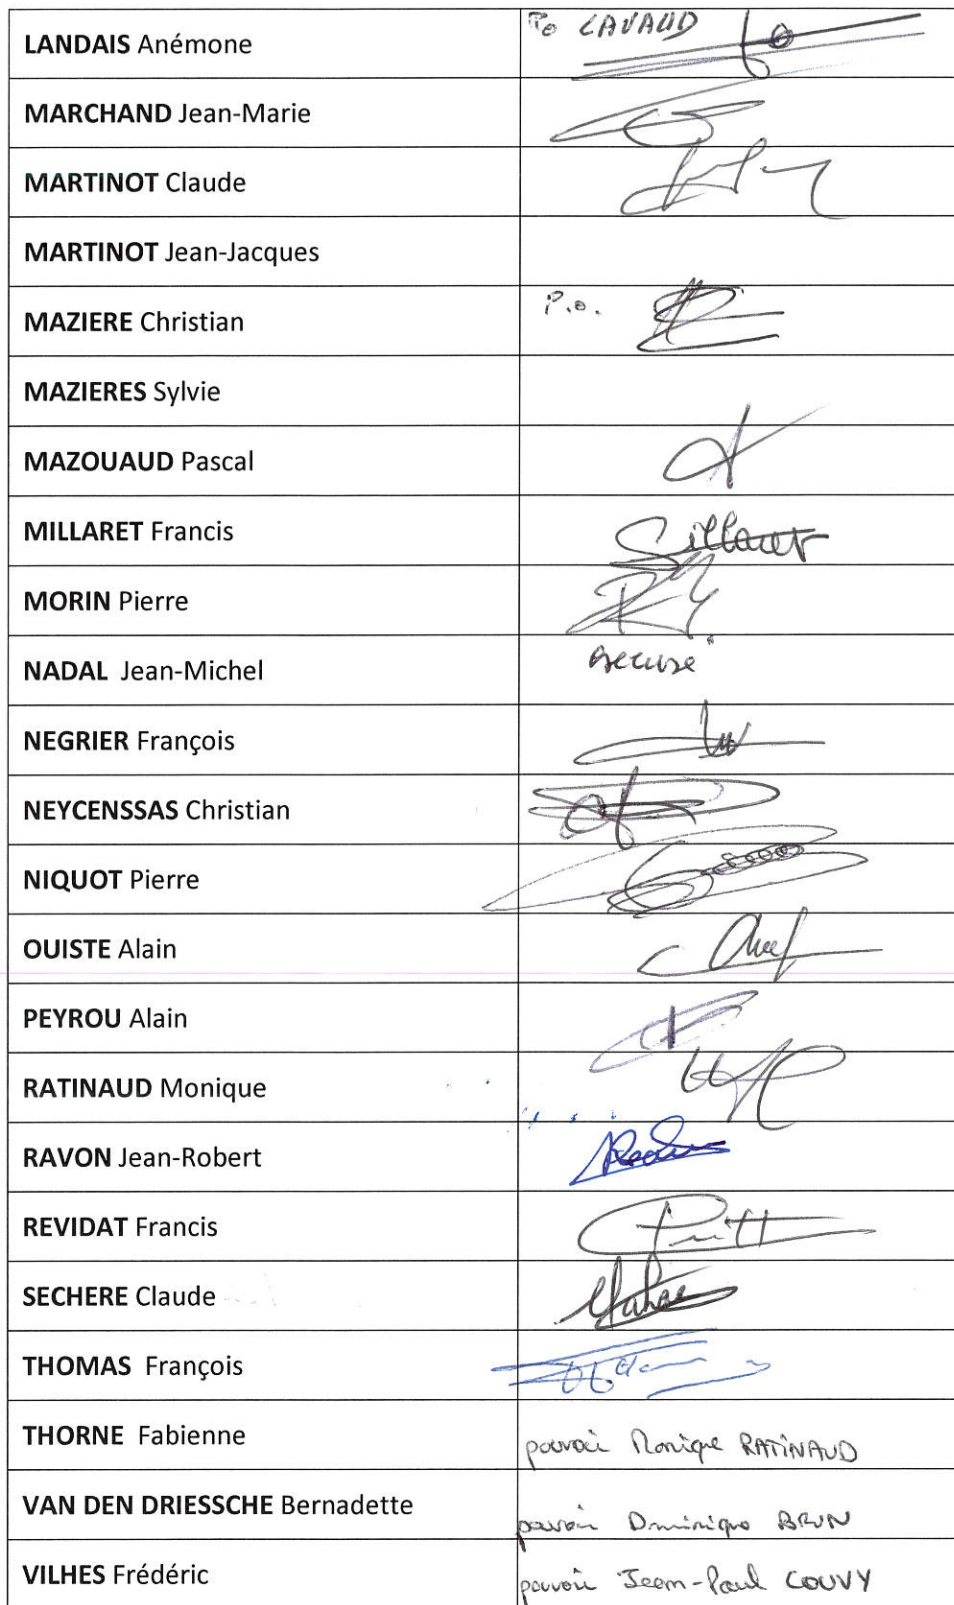 LANDAIS Anémone
Po LAVAUD
MARCHAND Jean-Marie
MARTINOT Claude
MARTINOT Jean-Jacques
MAZIERE Christian
P.o.
MAZIERES Sylvie
MAZOUAUD Pascal
MILLARET Francis
MORIN Pierre
NADAL Jean-Michel
NEGRIER François
NEYCENSSAS Christian
NIQUOT Pierre
OUISTE Alain
PEYROU Alain
RATINAUD Monique
RAVON Jean-Robert
REVIDAT Francis
SECHERE Claude
THOMAS François
THORNE Fabienne
pouvoir Monique RATINAUD
VAN DEN DRIESSCHE Bernadette
pouvoir Dominique BRUN
VILHES Frédéric
pouvoir Jean-Paul COUVY